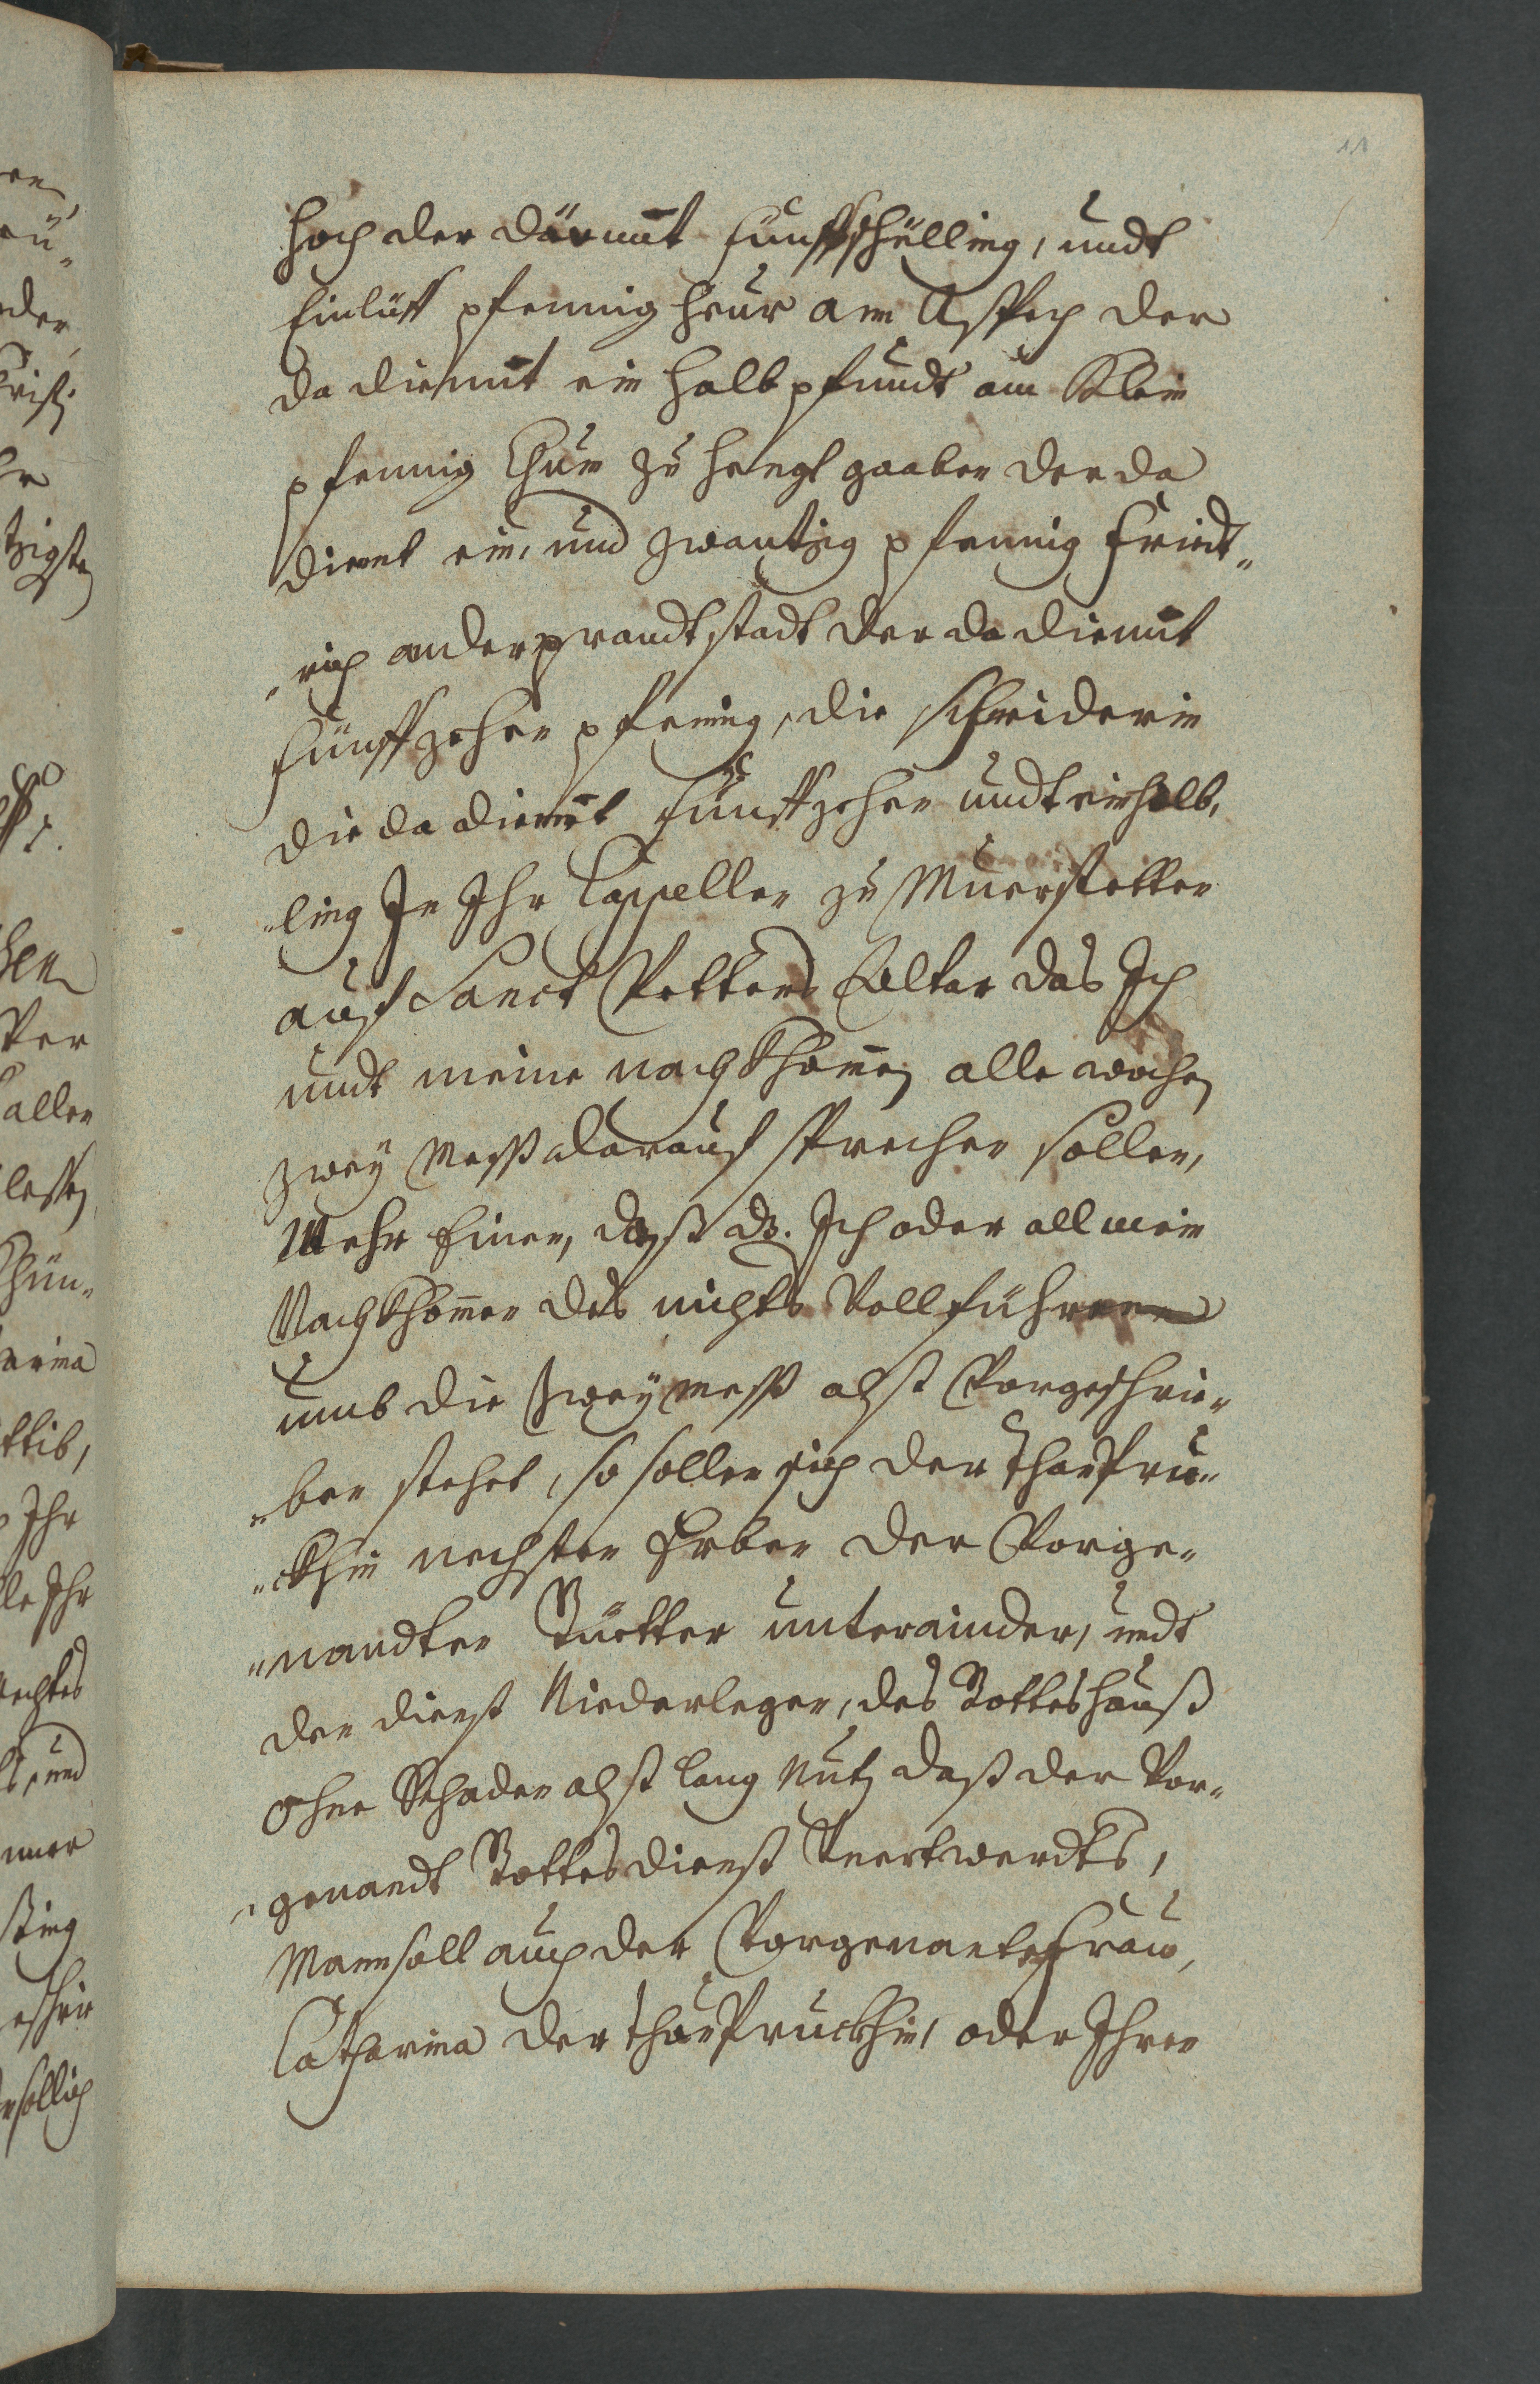 11
hoch der da dient fünff schilling, undt
Einliff pfennig heur am Aspach der
da dient ein halb pfundt am Klein
pfennig Chun zu hengl gaaben der da
dient ein, und zwantzig pfennig Fridt„
„rich anderprandtstadt der da dient
fünffzehen pfenig, die schneiderin
die da dient fünffzehen undt ein halb,
„ling In Ihr Cappellen zu Muerstetten
auf Sanct Petters Altar das Ich
undt meine nachkhomen alle wochen
zwey Mess darauf sprechen sollen,
Mehr Einer, dass ds. Ich oder all mein
Nachkhomen des nichts Vollführen
umb die zwey mess alss Vorgeschrie„
„ben stehet, so sollen sich der ThanPru„
„ckhin nechsten Erben der Vorge„
„nandten Güetter unterainder, undt
den dienst Niederlegen, des Gotteshauß
ohne Schaden alss lang Nutz dass der Vor„
„genandt Gottesdienst Veertwerdts,
Man soll auch der Vorgenanten Frau,
Catharina der ThanPruckhin, oder Ihren